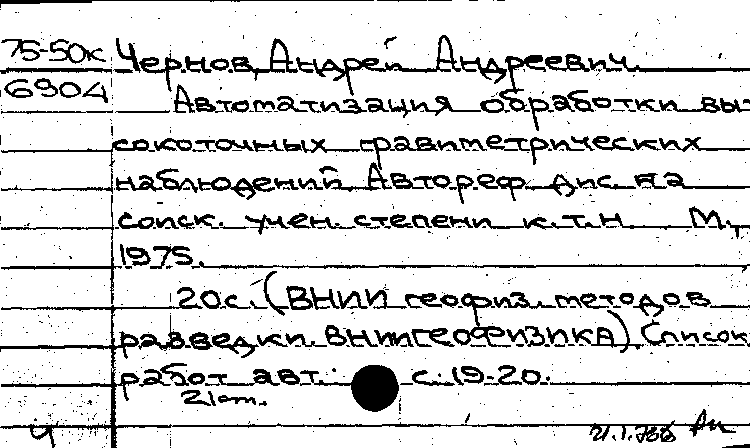 75-50к Чернов, Андрей Андреевич.
6904
Автоматизация обработки вы-
сокоточных гравиметрических
наблюдений. Автореф. дис. на
соиск. учен. степени к.т.н. М.,
1975.
20с. (ВНИИ геофиз. методов
разведки. ВНИИГЕОФИЗИКА) Список
работ авт.: с.19-20.
2 ian.
Ч